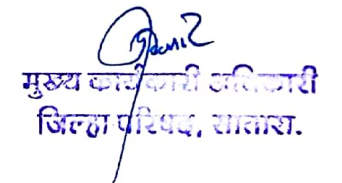 मुख्य कार्यकारी अधिकारी
जिल्हा परिषद, सातारा.